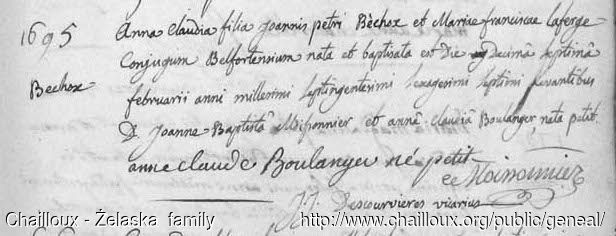 1695 Anna Claudia filia Joannis petri Bechox et Mariae franciscae laferge
Conjugum Belfortensium nata et baptisata est Die decimâ septimâ
Bechox
februarii anni millesimi septingentesimi sexagesimi septimi Levantibus
D. Joanne-Baptistâ Moisonnier et annâ Claudiâ Boulanger nata petit.
anne claude Boulanger né petit
Moisonnier
J.J. Descourvieres vicarius
Chailloux - Żelaska family http://www.chailloux.org/public/geneal/